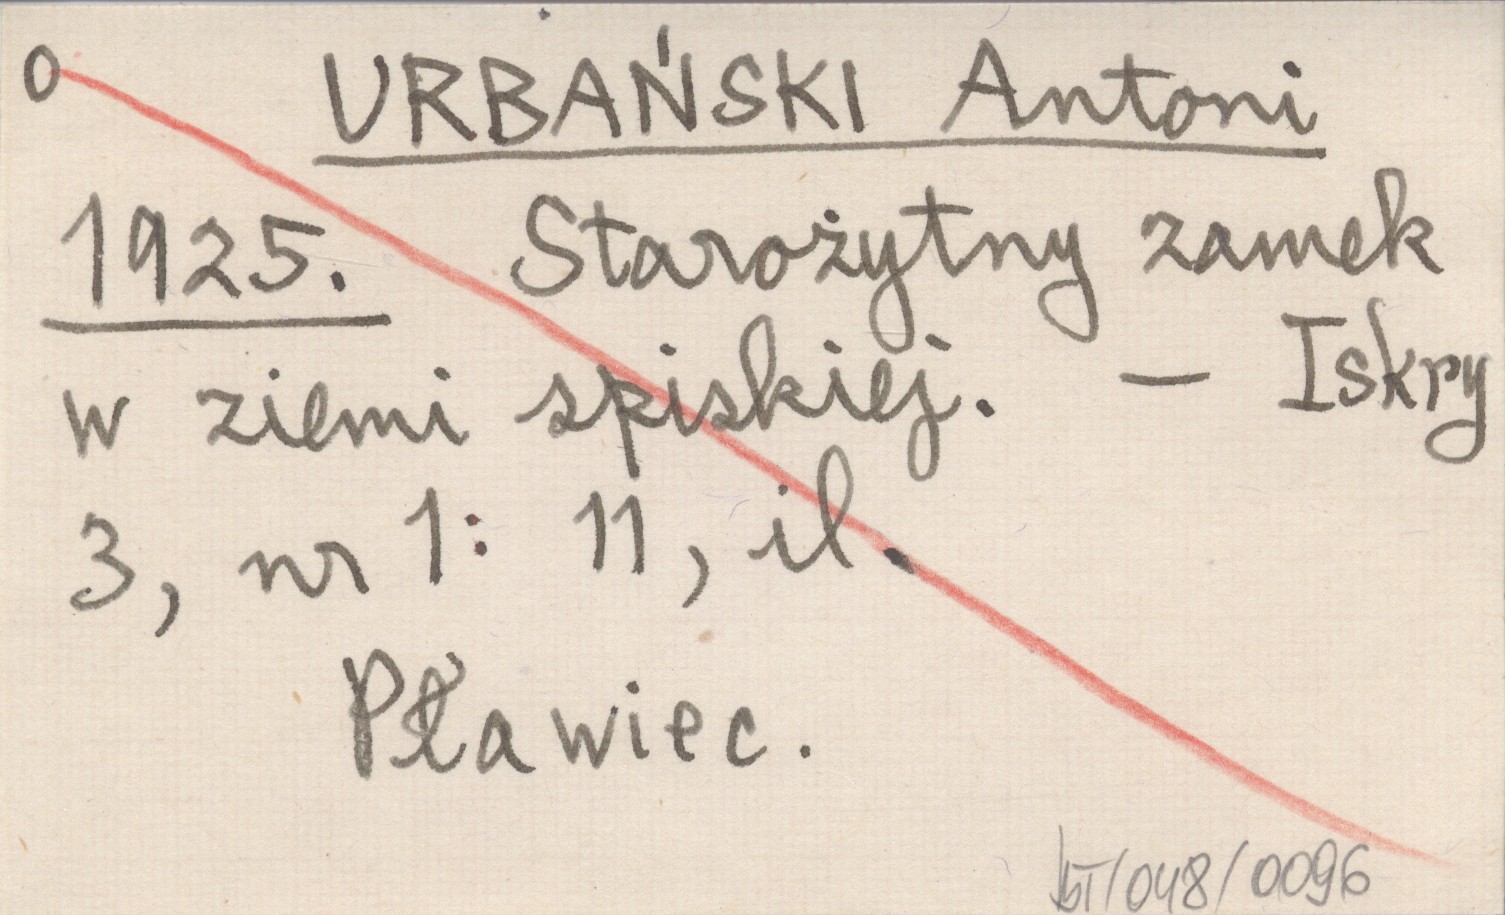 O URBAŃSKI Antoni
1925. Starożytny zamek
w ziemi spiskiej. — Iskry
3, nr 1: 11, il.
Pławiec.
/048/0096